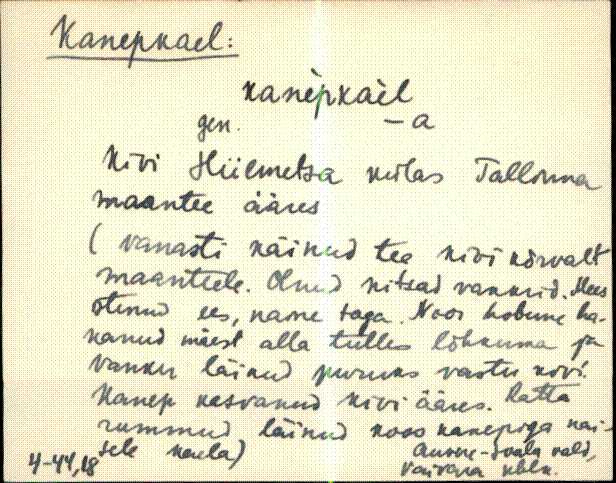 Kanepkael:
kanèpkàèl
gen. – a
kivi Hiiemetsa külas Tallinna
maantee ääres
( vanasti käinud tee kivi kõrvalt
maanteele. Olnud kitsad vankrid. Mees
istunud ees, naine taga. Noor hobune ha-
kanud mäest alla tulles lõhkuma ja
vanker läinud puruks vastu kivi.
Kanep kasvanud kivi ääres. Ratta
rummud läinud koos kanepiga nai-
sele kaela)
Auvere-Joala vald,
Vaivara khlk.
4-44,18